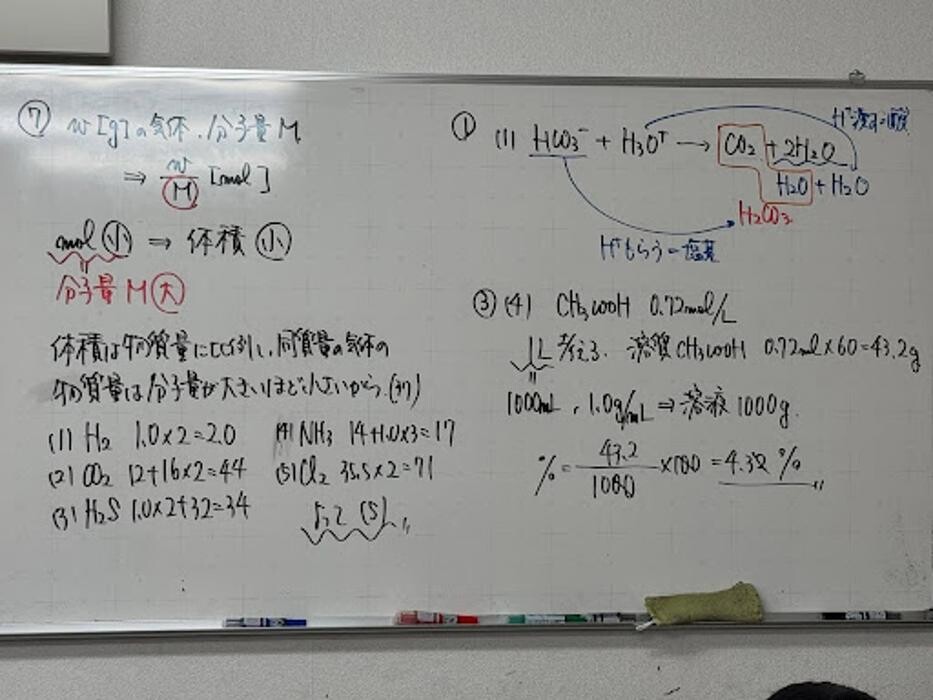 ⑦ w[g]の気体、分子量M
⇒ w/M [mol]
mol 小 ⇒ 体積 小
分子量 M 大
体積は物質量に比例し、同質量の気体の
物質量は分子量が大きいほど小さいから。(37)
(1) H₂ 1.0×2=2.0
(2) CO₂ 12+16×2=44
(3) H₂S 1.0×2+32=34
(4) NH₃ 14+1.0×3=17
(5) Cl₂ 35.5×2=71
よって (5)
① (1) HCO₃⁻ + H₃O⁺ → CO₂ + 2H₂O
H⁺渡す=酸
H₂O + H₂O
H₂CO₃
H⁺もらう=塩基
③ (4) CH₃COOH 0.72mol/L
1L 考える. 溶質CH₃COOH 0.72ml×60=43.2g
1000mL, 1.0g/mL ⇒ 溶液 1000g.
%= 43.2/1000 ×100 = 4.32 %